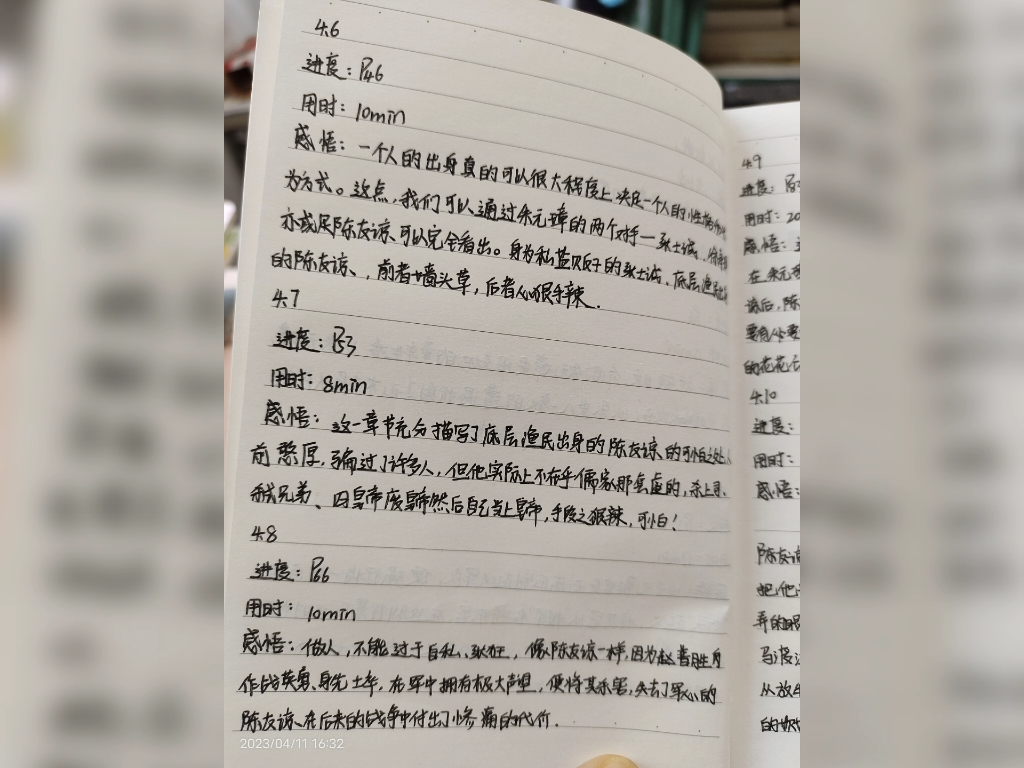 4.6
进度：P46
用时：10min
感悟：一个人的出身真的可以很大程度上决定一个人的性格和
为方式。这点，我们可以通过朱元璋的两个对手—张士诚、
亦或是陈友谅、可以完全看出。身为私盐贩子的张士诚、底层渔民
的陈友谅、，前者墙头草，后者心狠手辣.
4.7
进度：P53
用时：8min
感悟：这一章节充分描写了底层渔民出身的陈友谅、的可怕之处、
前憨厚，骗过了许多人，但他实际上不在乎儒家那套虚的，杀上司、
杀兄弟、囚皇帝废皇帝然后自己当上皇帝，手段之狠辣，可怕！
4.8
进度：P66
用时：10min
感悟：做人，不能过于自私、张狂，像陈友谅一样，因为赵普胜
作战英勇、身先士卒，在军中拥有极大声望，便将其杀害，失去了军心的
陈友谅、在后来的战争中付出了惨痛的代价.
2023/04/11 16:32
4.9
进度：
用时：20
感悟：
在朱元
谅后，陈
要有
的花花
4.10
进度：
用时：
感悟：
陈友谅
把他
弄的
马渡
从放
的